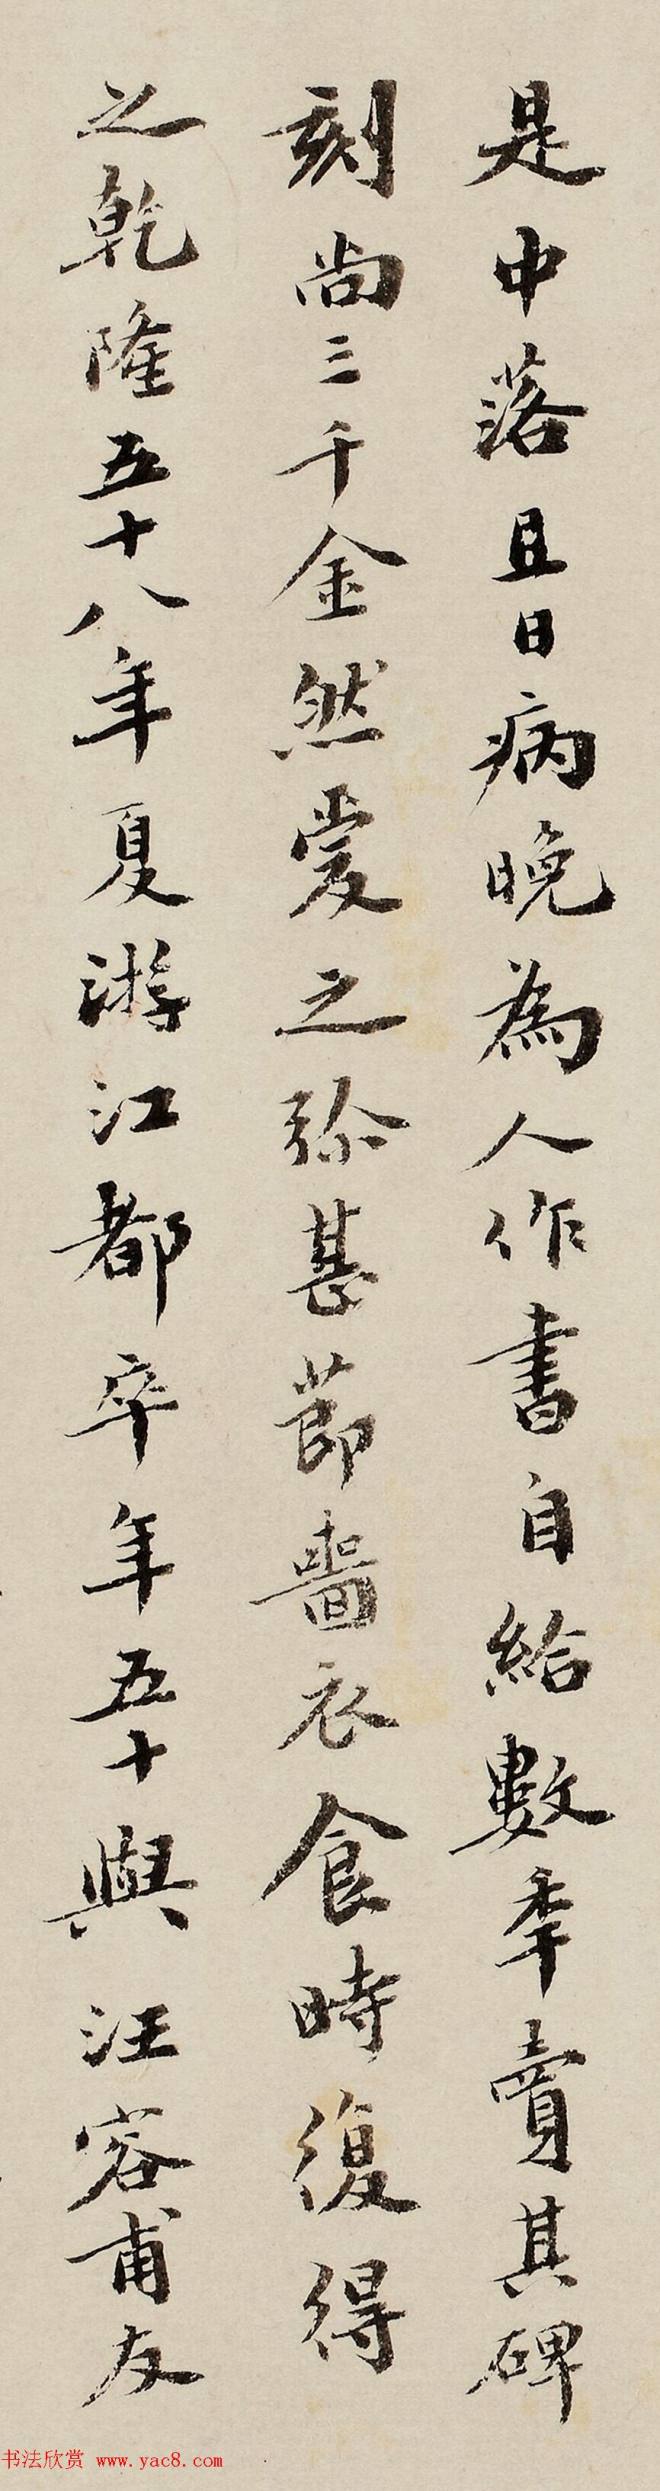 是中落且日病晚為人作書自給數年賣其碑
刻尚三千金然愛之弥甚節嗇衣食時復得
之乾隆五十八年夏游江都卒年五十與汪容甫友
书法欣赏 www.yac8.com